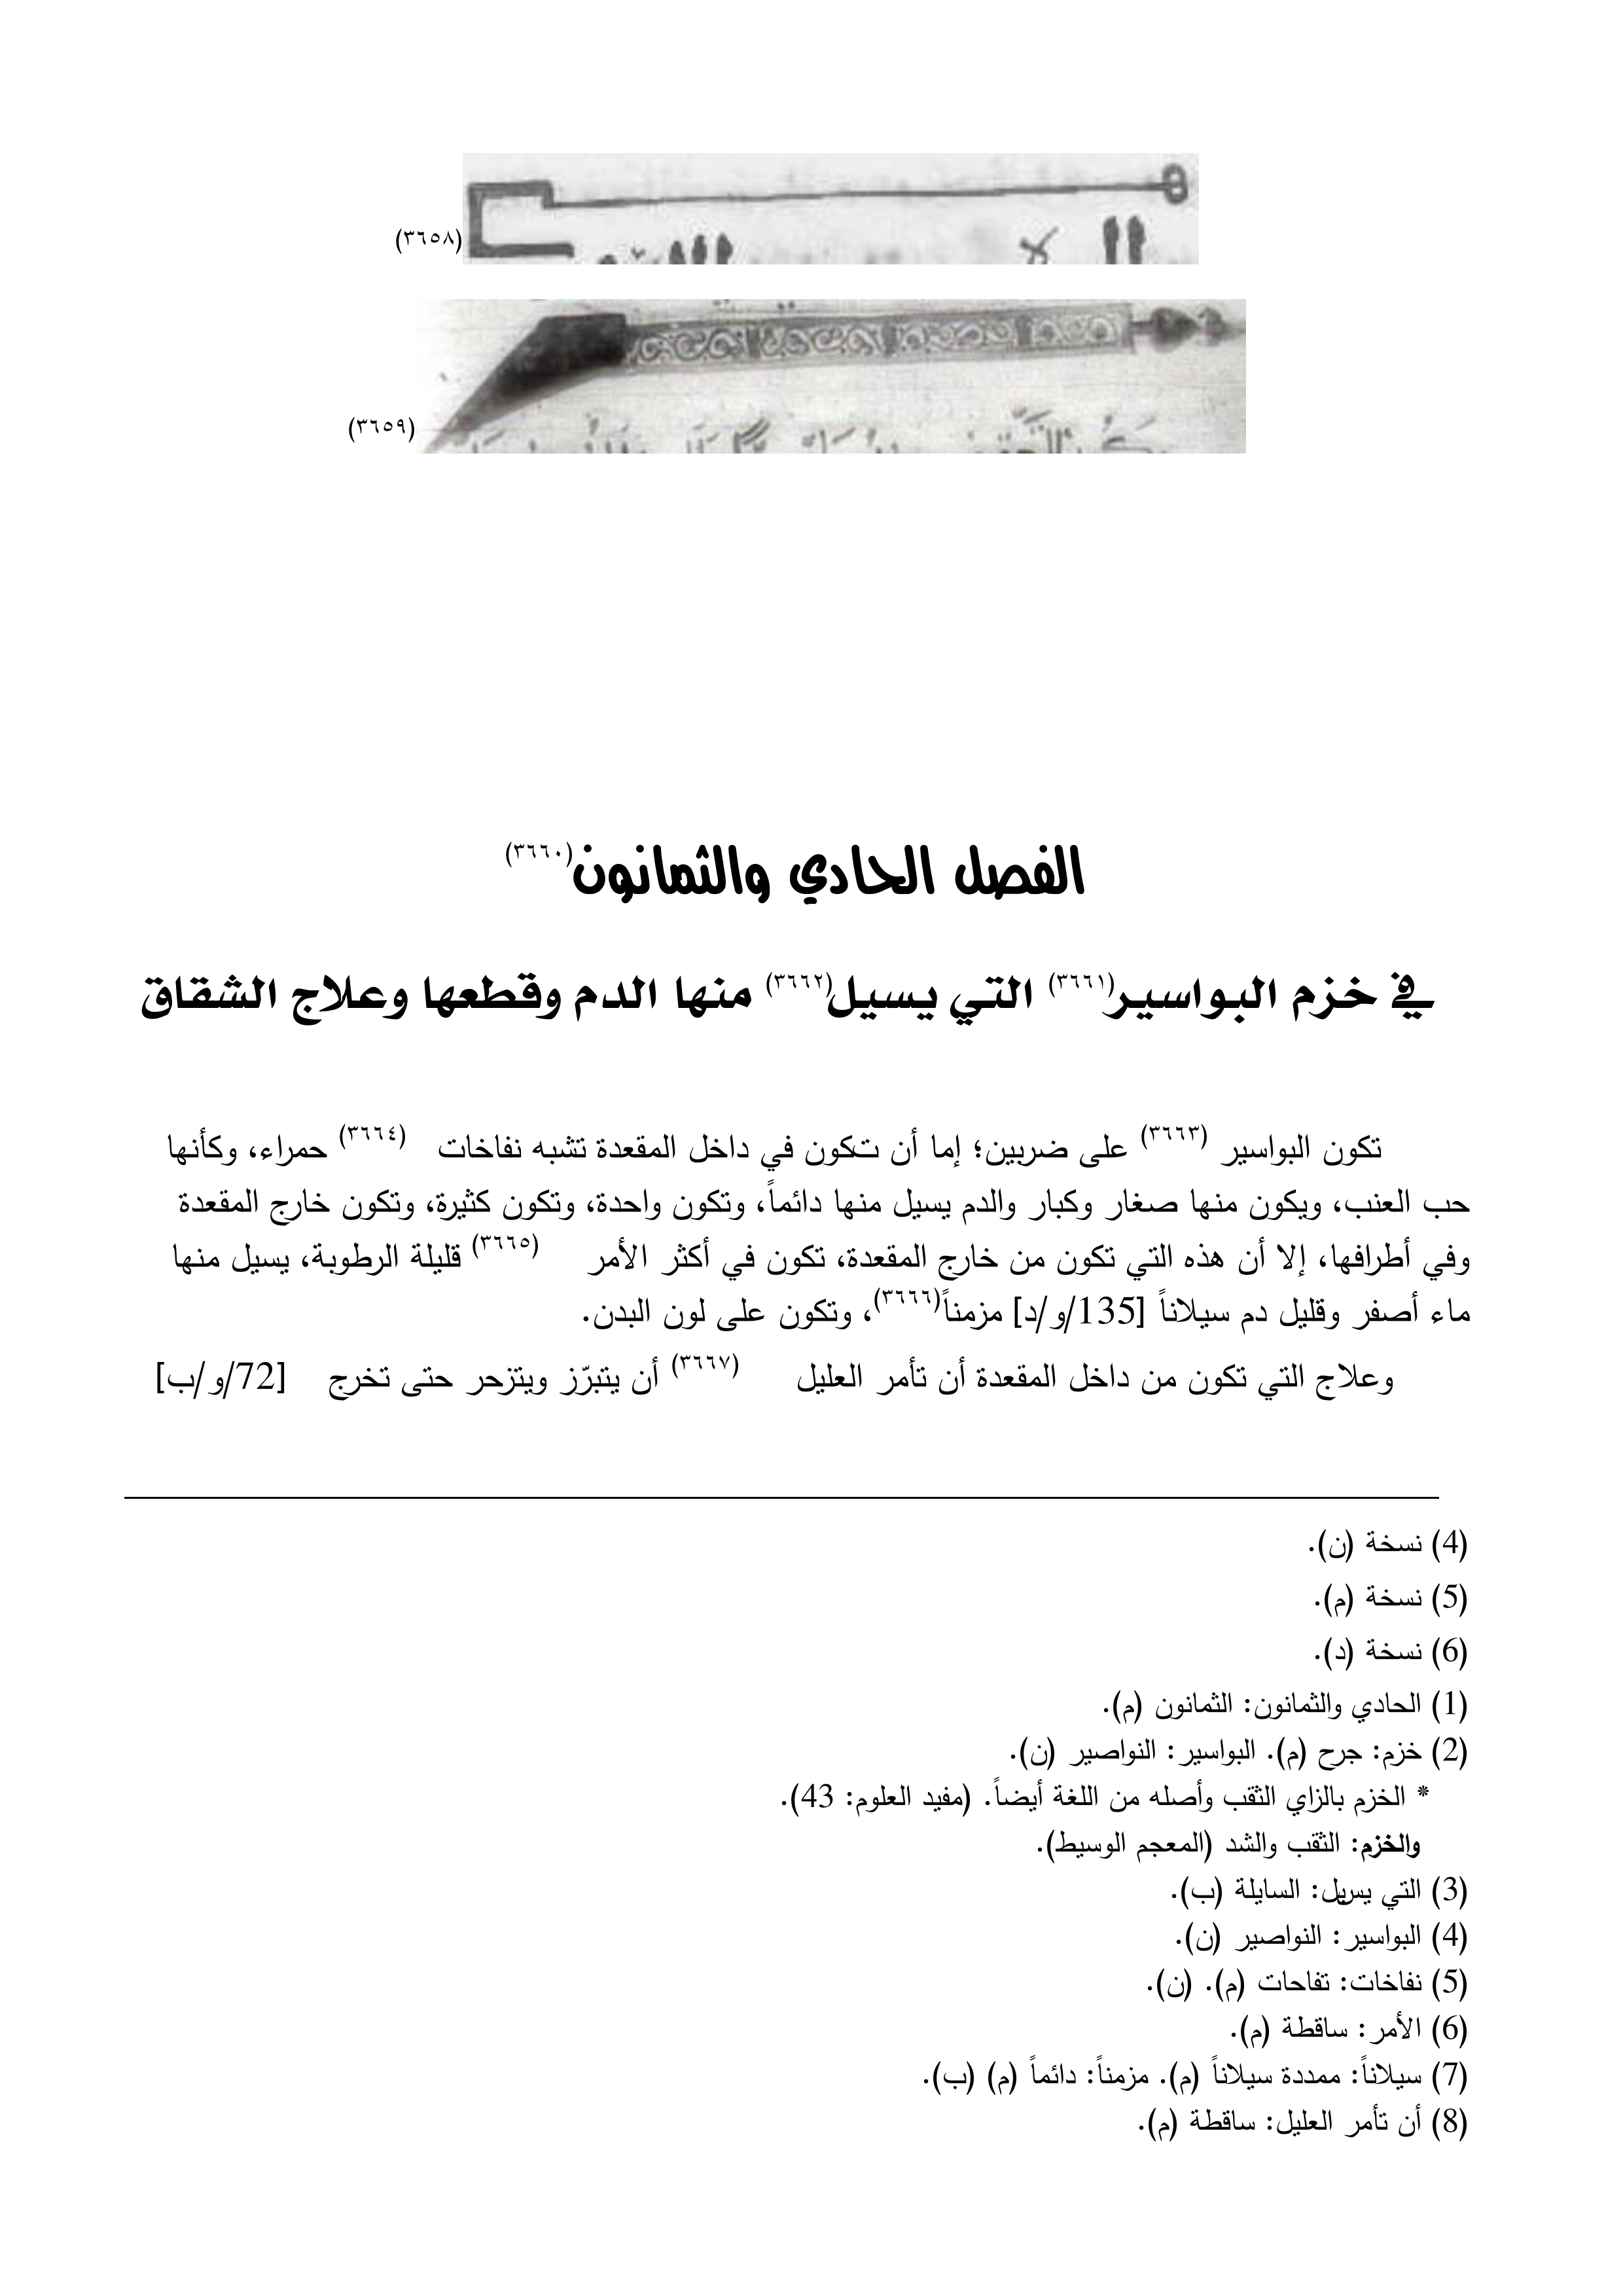 (٣٦٥٨)
(٣٦٥٩)
الفصل الحادي والثمانون(٣٦٦٠)
في خزم البواسير(٣٦٦١) التي يسيل(٣٦٦٢) منها الدم وقطعها وعلاج الشقاق
تكون البواسير (٣٦٦٣) على ضربين؛ إما أن تكون في داخل المقعدة تشبه نفاخات (٣٦٦٤) حمراء، وكأنها
حب العنب، ويكون منها صغار وكبار والدم يسيل منها دائماً، وتكون واحدة، وتكون كثيرة، وتكون خارج المقعدة
وفي أطرافها، إلا أن هذه التي تكون من خارج المقعدة، تكون في أكثر الأمر (٣٦٦٥) قليلة الرطوبة، يسيل منها
ماء أصفر وقليل دم سيلاناً [135/و/د] مزمناً(٣٦٦٦)، وتكون على لون البدن.
وعلاج التي تكون من داخل المقعدة أن تأمر العليل (٣٦٦٧) أن يتبرّز ويتزحر حتى تخرج [72/و/ب]
(4) نسخة (ن).
(5) نسخة (م).
(6) نسخة (د).
(1) الحادي والثمانون: الثمانون (م).
(2) خزم: جرح (م). البواسير: النواصير (ن).
* الخزم بالزاي الثقب وأصله من اللغة أيضاً. (مفيد العلوم: 43).
والخزم: الثقب والشد (المعجم الوسيط).
(3) التي يسيل: السايلة (ب).
(4) البواسير: النواصير (ن).
(5) نفاخات: تفاحات (م). (ن).
(6) الأمر: ساقطة (م).
(7) سيلاناً: ممددة سيلاناً (م). مزمناً: دائماً (م) (ب).
(8) أن تأمر العليل: ساقطة (م).